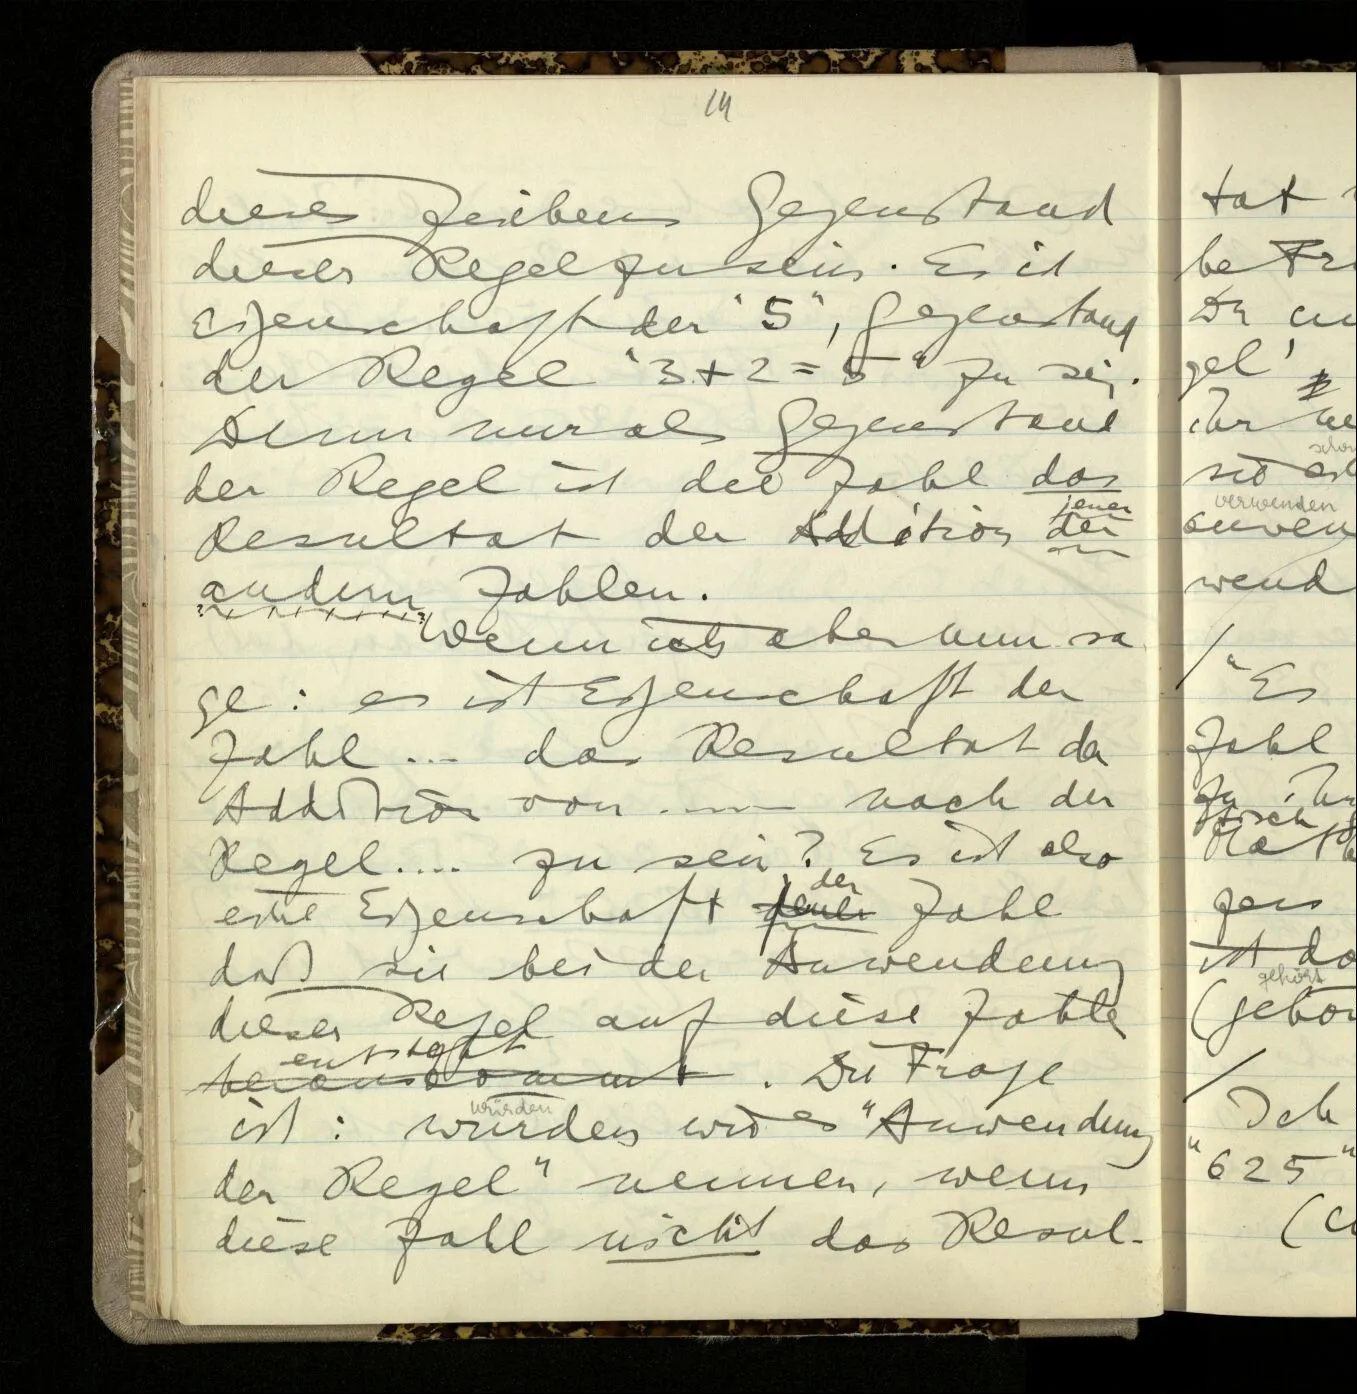 14
dieses Zeichens Gegenstand
dieser Regel zu sein. Es ist
Eigenschaft der “5”, Gegenstand
der Regel “3 + 2 = 5” zu sein.
Denn nur als Gegenstand
der Regel ist die Zahl das
jener
Resultat der Addition der
andern Zahlen.
Wenn ich aber nun sa
ge: es ist Eigenschaft der
Zahl ... das Resultat der
Addition von ..... nach der
Regel.... zu sein? Es ist also
der
eine Eigenschaft jener Zahl
daß sie bei der Anwendung
dieser Regel auf diese Zahlen
entsteht
herauskommt. Die Frage
würden
ist: würden wir es “Anwendung
der Regel” nennen, wenn
diese Zahl nicht das Resul-
tat
be Fra
Die
gel'
ihr
schon
verwenden
wend
/ “Es
Zahl
zu ihr
tisch
ist da
gehört
(gehör
/ Ich
“625”